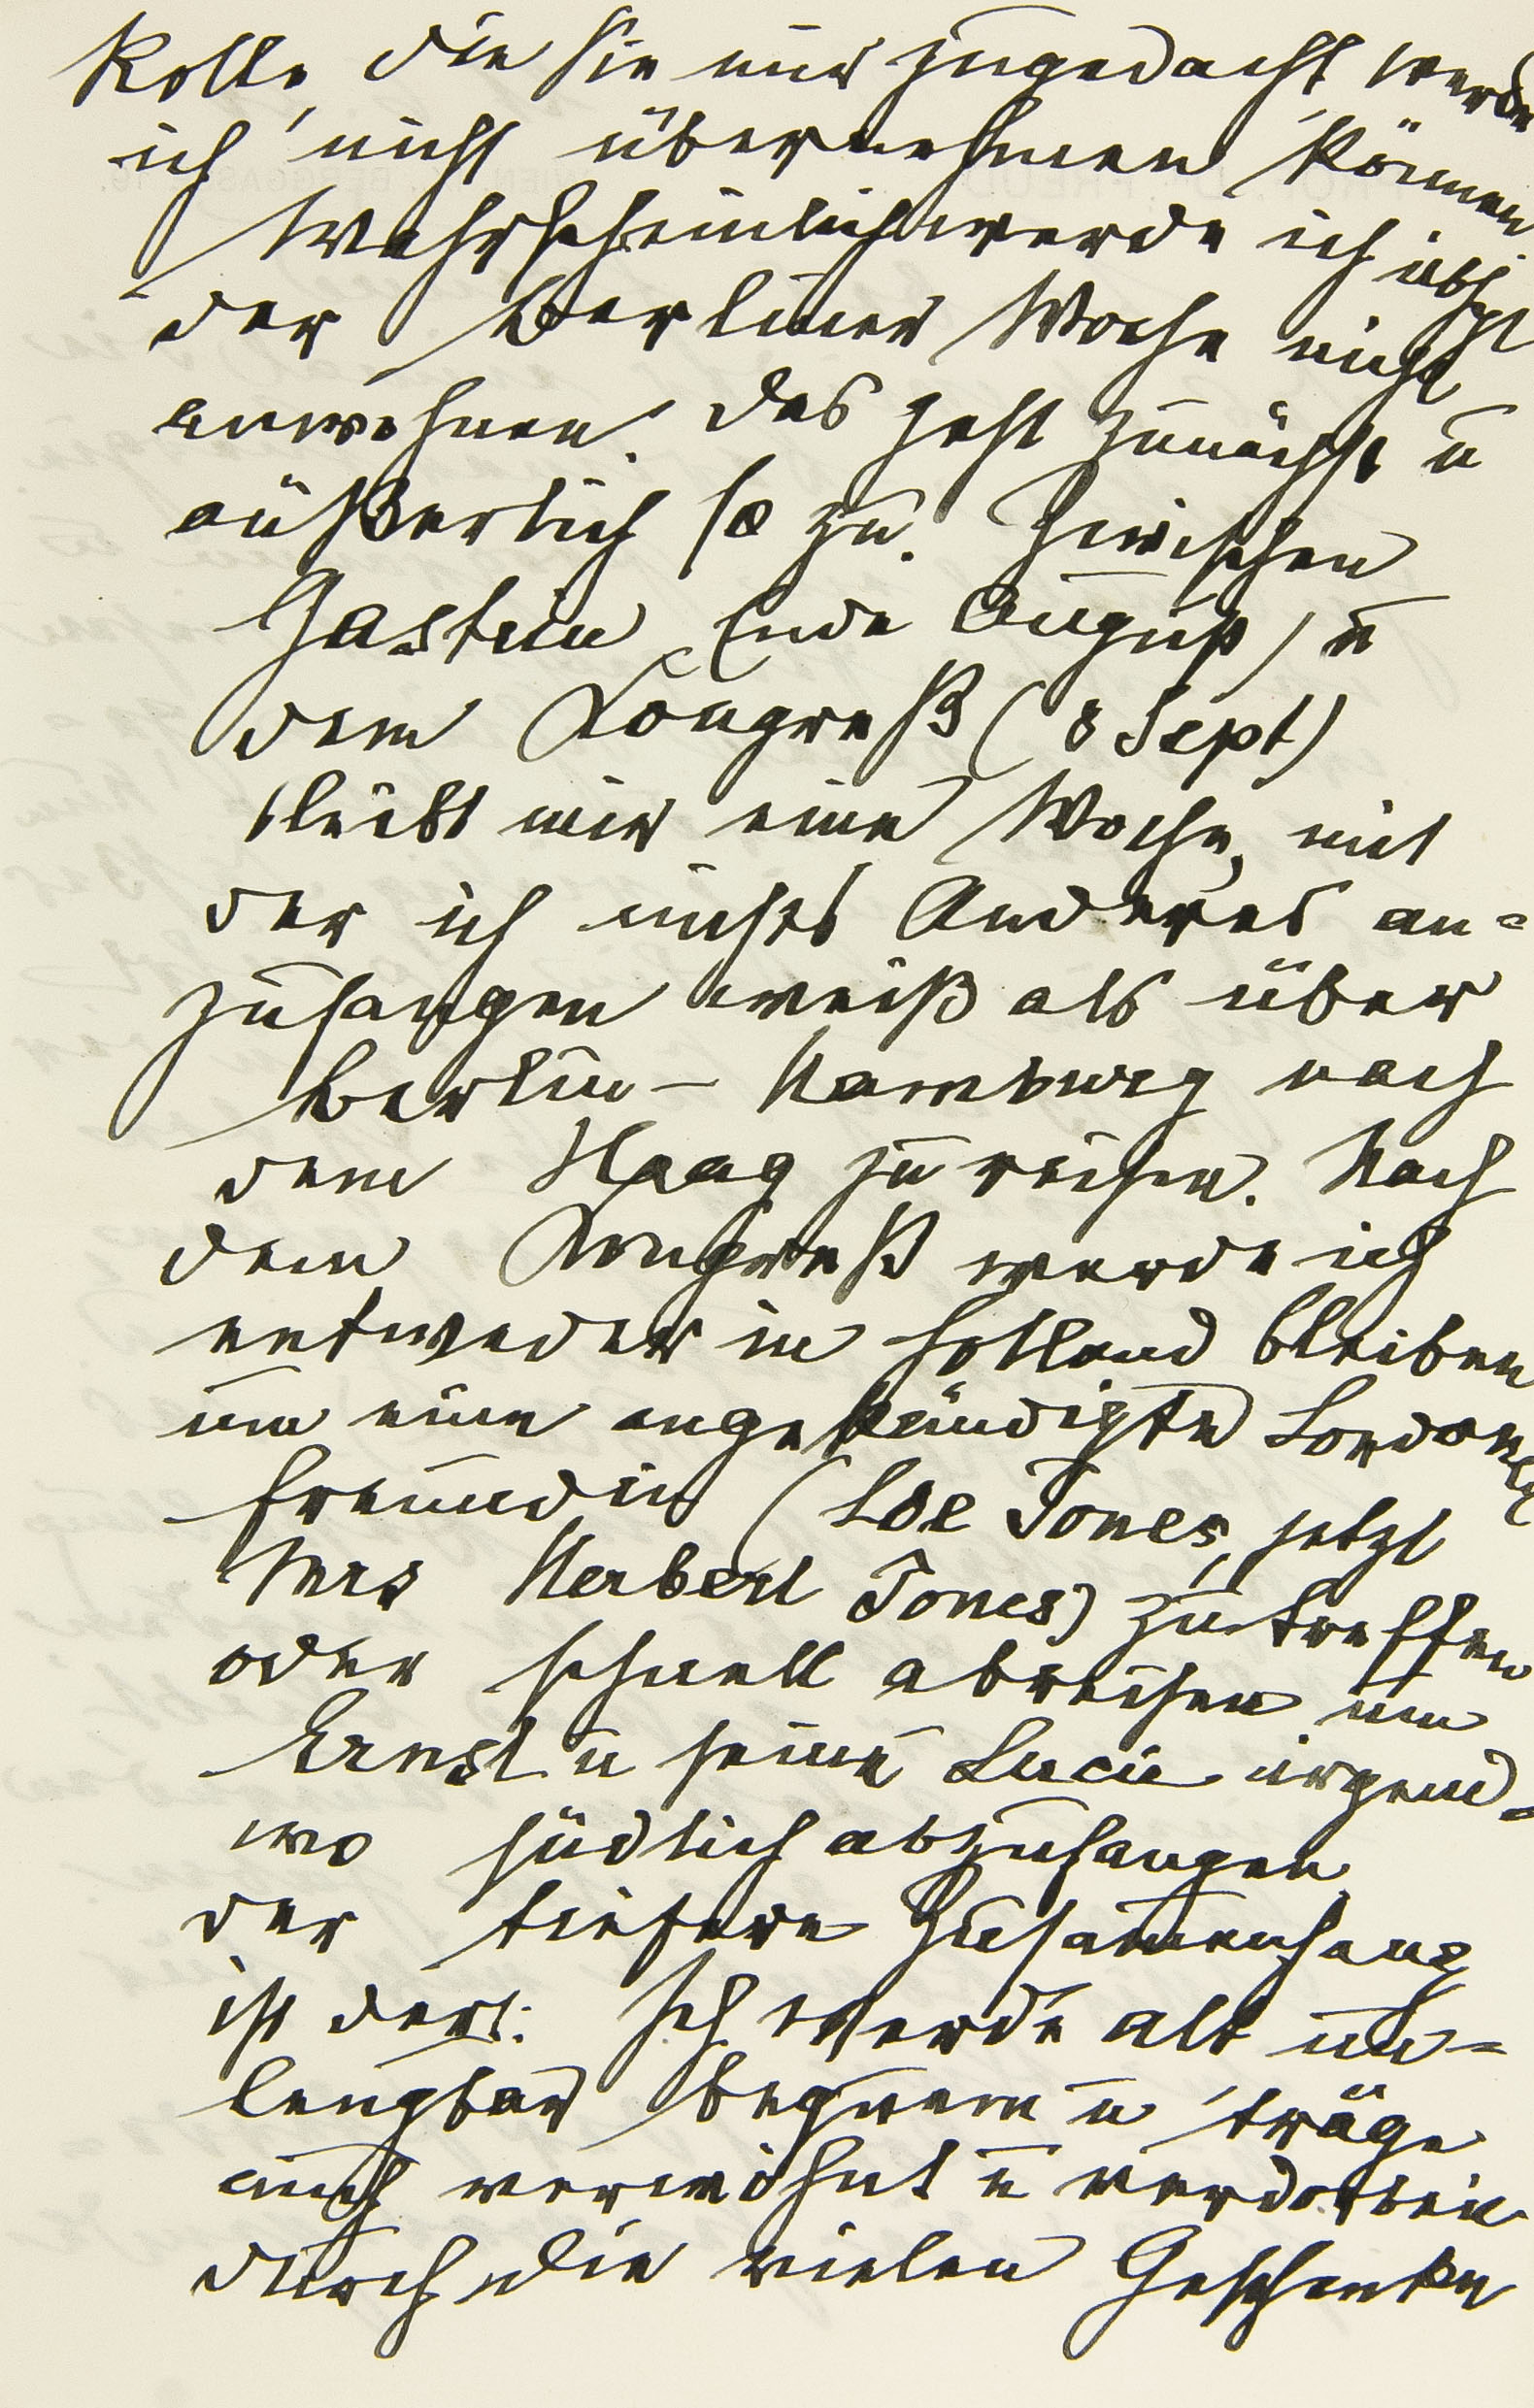 Rolle, die Sie mir zugedacht werde
ich nicht übernehmen können
Wahrscheinlich werde ich
der Berliner Woche nicht
anwohnen. Das geht zunächst u
äußerlich so zu. Zwischen
Gastein (Ende August) u
dem Kongreß (8 Sept)
bleibt mir eine Woche, mit
der ich nichts Anderes an-
zufangen weiß als über
Berlin – Hamburg nach
dem Haag zu reisen. Nach
dem Kongreß werde ich
entweder in Holland bleiben
um eine angekündigte Londoner
Freundin (Loe Jones, jetzt
Mrs Herbert Jones) zu treffen
oder schnell abreisen um
Ernst u seine Lucie irgend-
wo südlich abzufangen
der tiefere Zusammenhang
ist der: Ich werde alt un-
leugbar bequem u träge
auch verwöhnt u verdorben
durch die vielen Geschenke